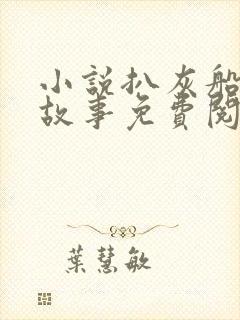 小說扒灰船
故事免費閱
葉慧敏